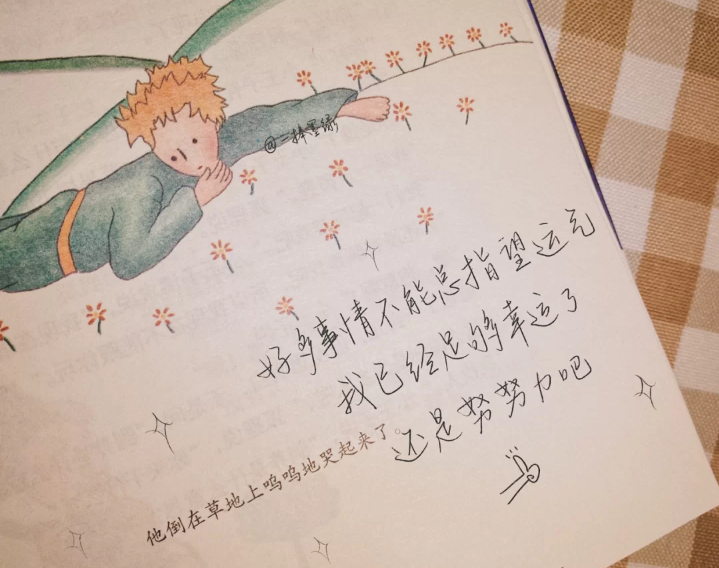 @一捧墨绿
好多事情不能总指望运气
我已经足够幸运了
还是努努力吧
他倒在草地上呜呜地哭起来了。